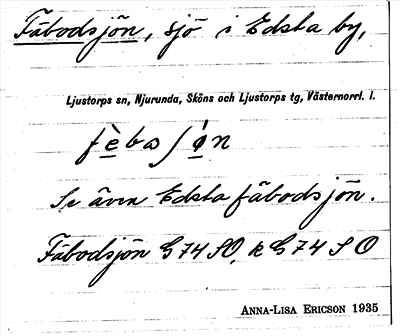 Fäbodsjön, sjö i Edsta by,
Ljustorps sn, Njurunda, Sköns och Ljustorps tg, Västernorrl. l.
Se även Edsta fäbodsjön.
Fäbodsjön G 74 SO, k G 74 S O
ANNA-LISA ERICSON 1935